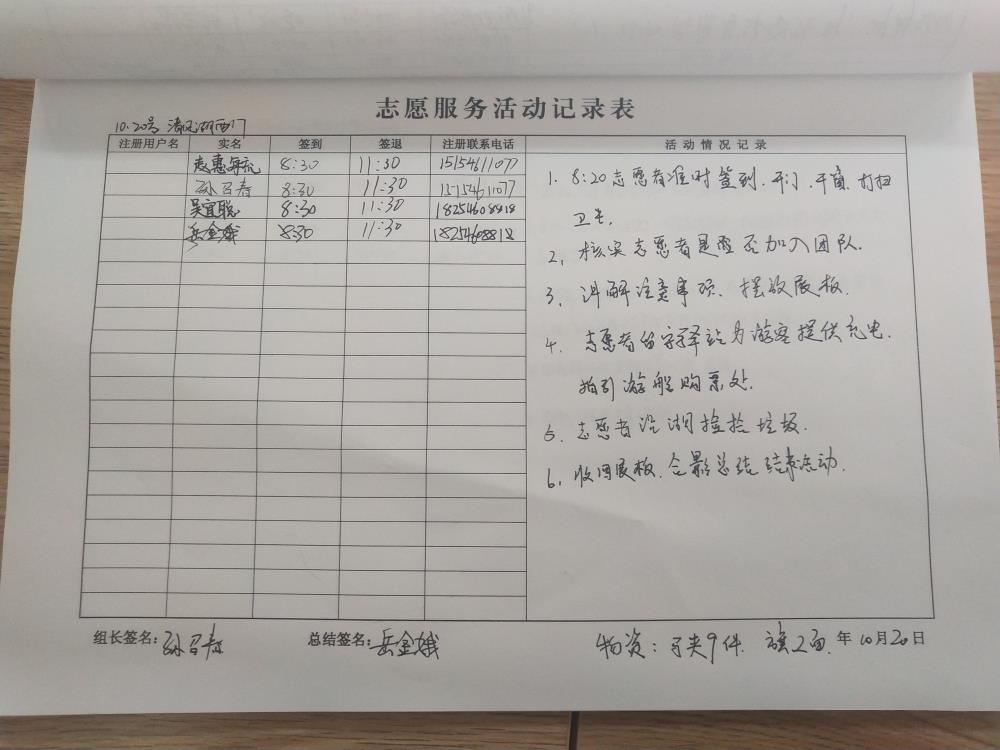 志愿服务活动记录表
10.20号 清风湖西门
注册用户名 实名 签到 签退 注册联系电话 活动情况记录
8:30 11:30 15154611077
孙召寿 8:30 11:30 15154611077
吴宜聪 8:30 11:30 18254608818
岳金娥 8:30 11:30 18254608818
1. 8:20志愿者准时签到.开门.开窗.打扫
卫生.
2, 核实志愿者是否加入团队.
3, 讲解注意事项、摆放展板.
4. 志愿者留守驿站为游客提供充电.
指引游船购票处.
5. 志愿者沿湖捡拾垃圾.
6, 收回展板.合影总结结束活动.
组长签名:孙召寿 总结签名:岳金娥 物资:马夹9件. 旗2面. 年10月20日